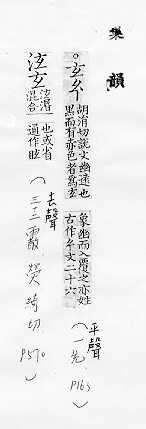 集韻
。玄𢆯 胡涓切說文幽遠也
黑而有赤色者爲玄
象幽而入覆之亦姓
古作𢆯文二十六
(平聲
一先 P163)
泫玄 泫潺
混合
一也或省
通作眩
(去聲
三三霰 熒絢切
P570)